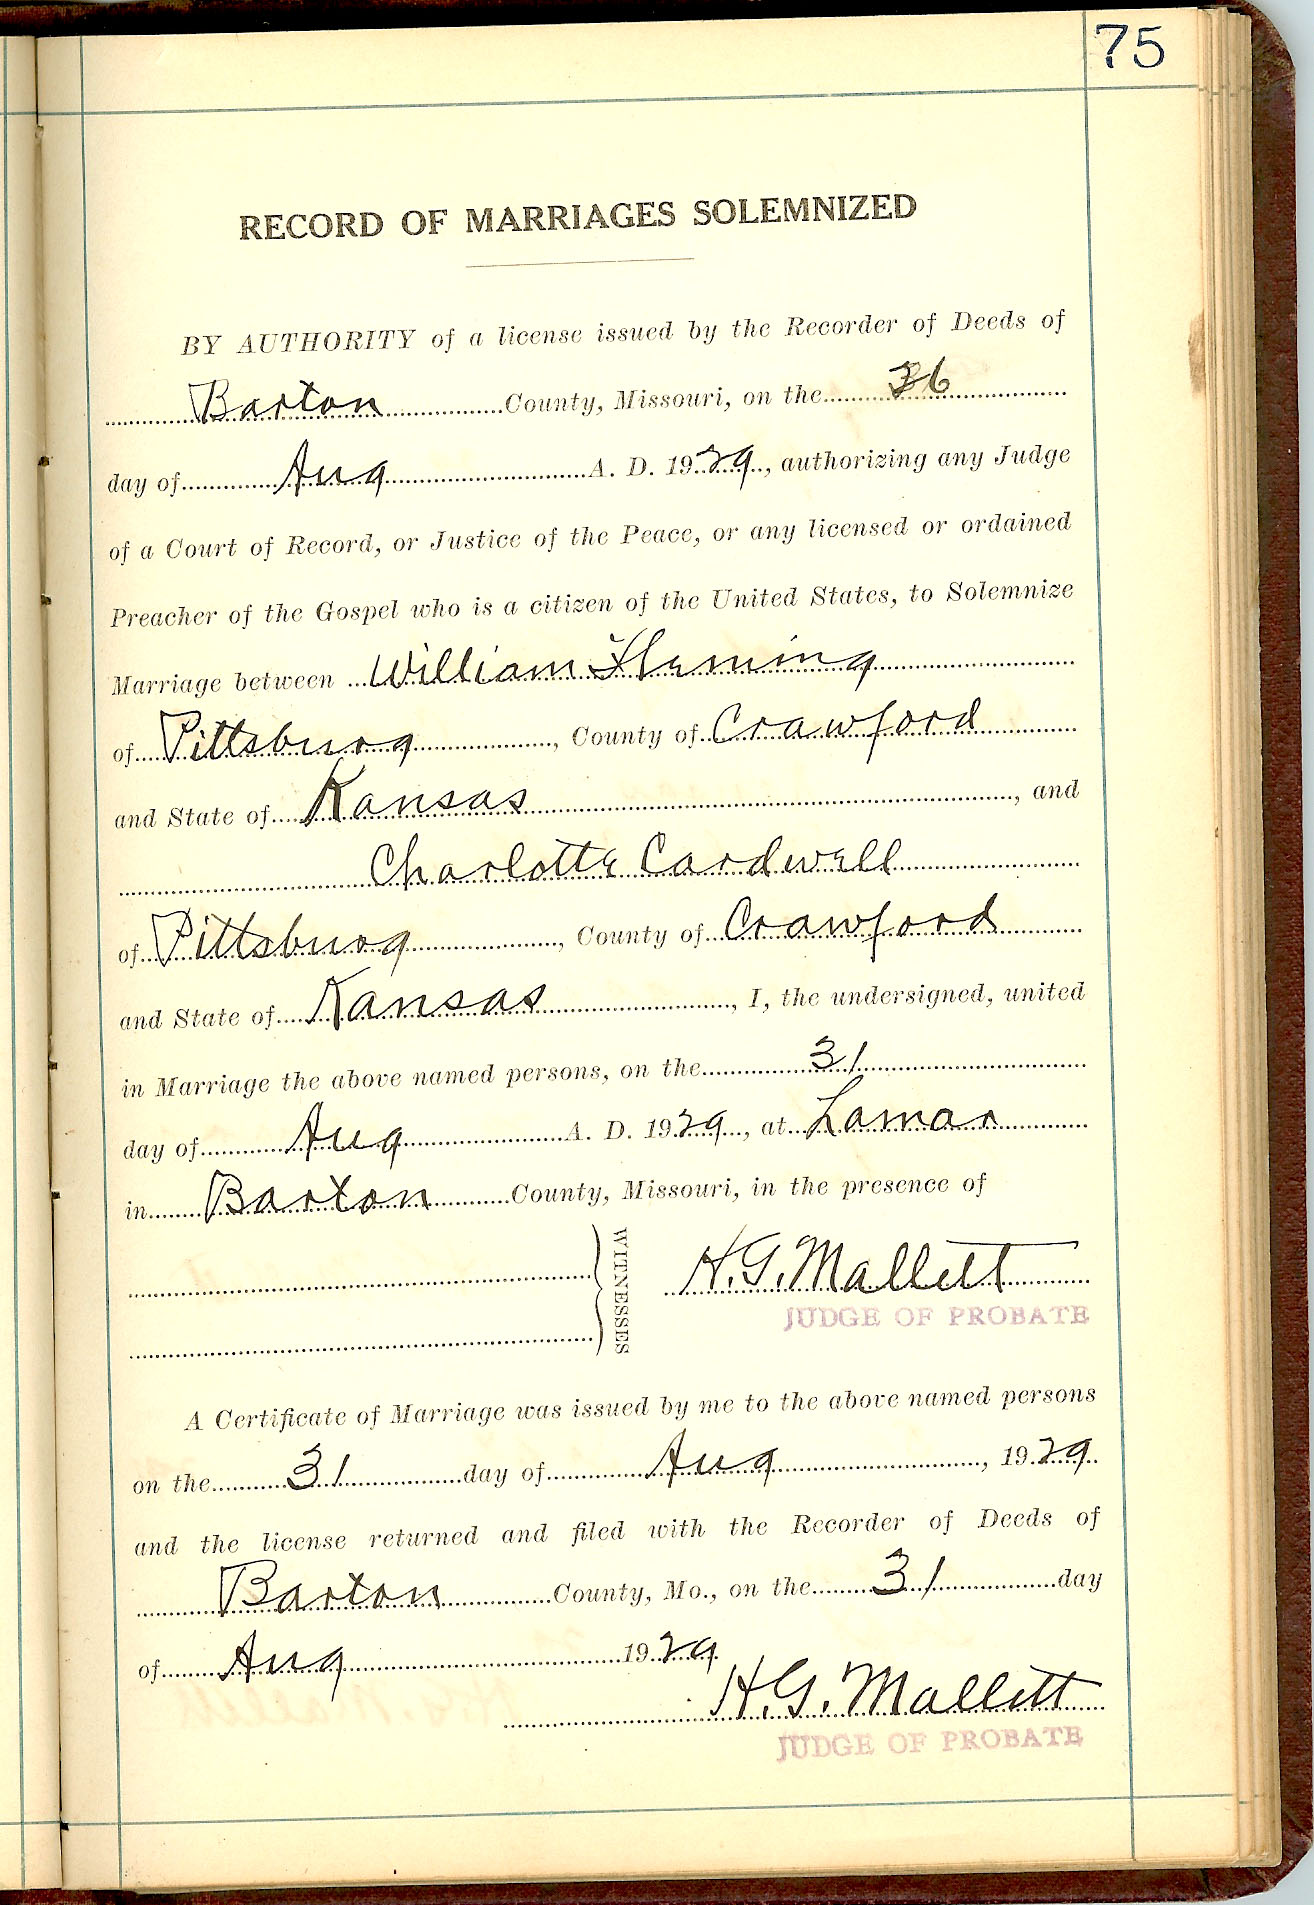 75
RECORD OF MARRIAGES SOLEMNIZED
BY AUTHORITY of a license issued by the Recorder of Deeds of
Barton County, Missouri, on the
day of Aug A. D. 1929, authorizing any Judge
of a Court of Record, or Justice of the Peace, or any licensed or ordained
Preacher of the Gospel who is a citizen of the United States, to Solemnize
Marriage between William Fleming
of Pittsburg, County of Crawford
and State of Kansas, and
Charlotte Cardwell
of Pittsburg, County of Crawford
and State of Kansas, I, the undersigned, united
in Marriage the above named persons, on the 31
day of Aug A. D. 1929, at Lamar
in Barton County, Missouri, in the presence of
WITNESSES
H. G. Mallett
JUDGE OF PROBATE
A Certificate of Marriage was issued by me to the above named persons
on the 31 day of Aug, 1929
and the license returned and filed with the Recorder of Deeds of
Barton County, Mo., on the 31 day
of Aug 1929
H. G. Mallett
JUDGE OF PROBATE